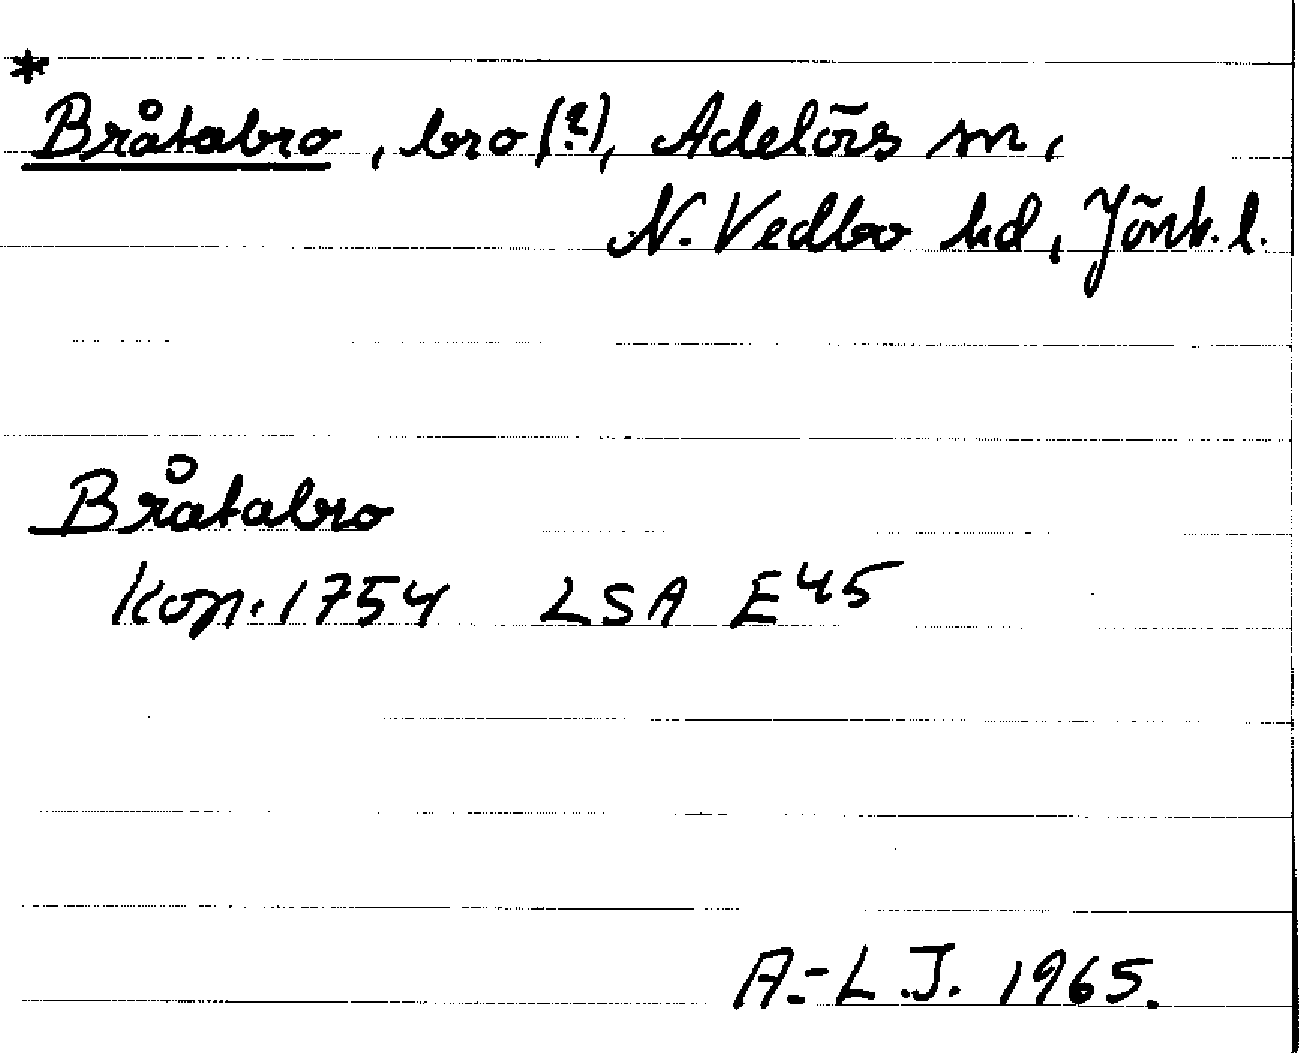 *
Bråtabro, bro (?), Adelövs sn,
N. Vedbo hd, Jönk. l.
Bråtabro
Kop. 1754 LSA E45
A.-L.J. 1965.